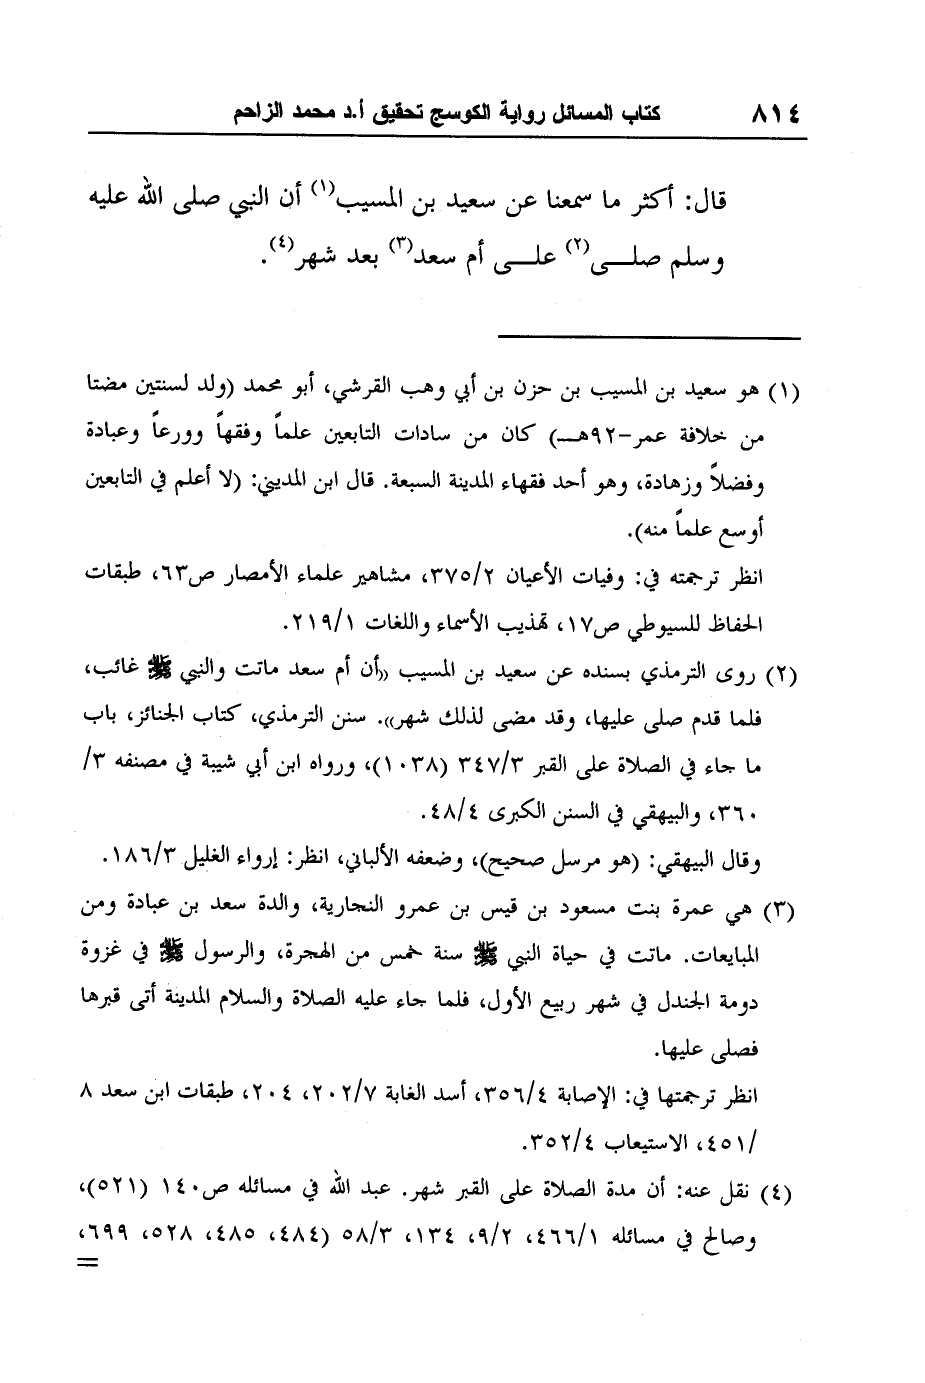 ٨١٤ كتاب المسائل رواية الكوسج تحقيق أ.د محمد الزاحم
قال: أكثر ما سمعنا عن سعيد بن المسيب(١) أن النبي صلى الله عليه
وسلم صلـــى(٢) علـــى أم سعد(٣) بعد شهر(٤).
(١) هو سعيد بن المسيب بن حزن بن أبي وهب القرشي، أبو محمد (ولد لسنتين مضتا
من خلافة عمر-٩٢هــ) كان من سادات التابعين علماً وفقهاً وورعاً وعبادة
وفضلاً وزهادة، وهو أحد فقهاء المدينة السبعة. قال ابن المديني: (لا أعلم في التابعين
أوسع علماً منه).
انظر ترجمته في: وفيات الأعيان ٣٧٥/٢، مشاهير علماء الأمصار ص٦٣، طبقات
الحفاظ للسيوطي ص١٧، تهذيب الأسماء واللغات ٢١٩/١.
(٢) روى الترمذي بسنده عن سعيد بن المسيب ((أن أم سعد ماتت والنبي ﷺ غائب،
فلما قدم صلى عليها، وقد مضى لذلك شهر)). سنن الترمذي، كتاب الجنائز، باب
ما جاء في الصلاة على القبر ٣٤٧/٣ (١٠٣٨)، ورواه ابن أبي شيبة في مصنفه ٣/
٣٦٠، والبيهقي في السنن الكبرى ٤٨/٤.
وقال البيهقي: (هو مرسل صحيح)، وضعفه الألباني، انظر: إرواء الغليل ١٨٦/٣.
(٣) هي عمرة بنت مسعود بن قيس بن عمرو النجارية، والدة سعد بن عبادة ومن
المبايعات. ماتت في حياة النبي ﷺ سنة خمس من الهجرة، والرسول ﷺ في غزوة
دومة الجندل في شهر ربيع الأول، فلما جاء عليه الصلاة والسلام المدينة أتى قبرها
فصلى عليها.
انظر ترجمتها في: الإصابة ٣٥٦/٤، أسد الغابة ٢٠٢/٧، ٢٠٤، طبقات ابن سعد ٨
/٤٥١، الاستيعاب ٣٥٢/٤.
(٤) نقل عنه: أن مدة الصلاة على القبر شهر. عبد الله في مسائله ص١٤٠ (٥٢١)،
وصالح في مسائله ٤٦٦/١، ٩/٢، ١٣٤، ٥٨/٣ (٤٨٤، ٤٨٥، ٥٢٨، ٦٩٩،
=